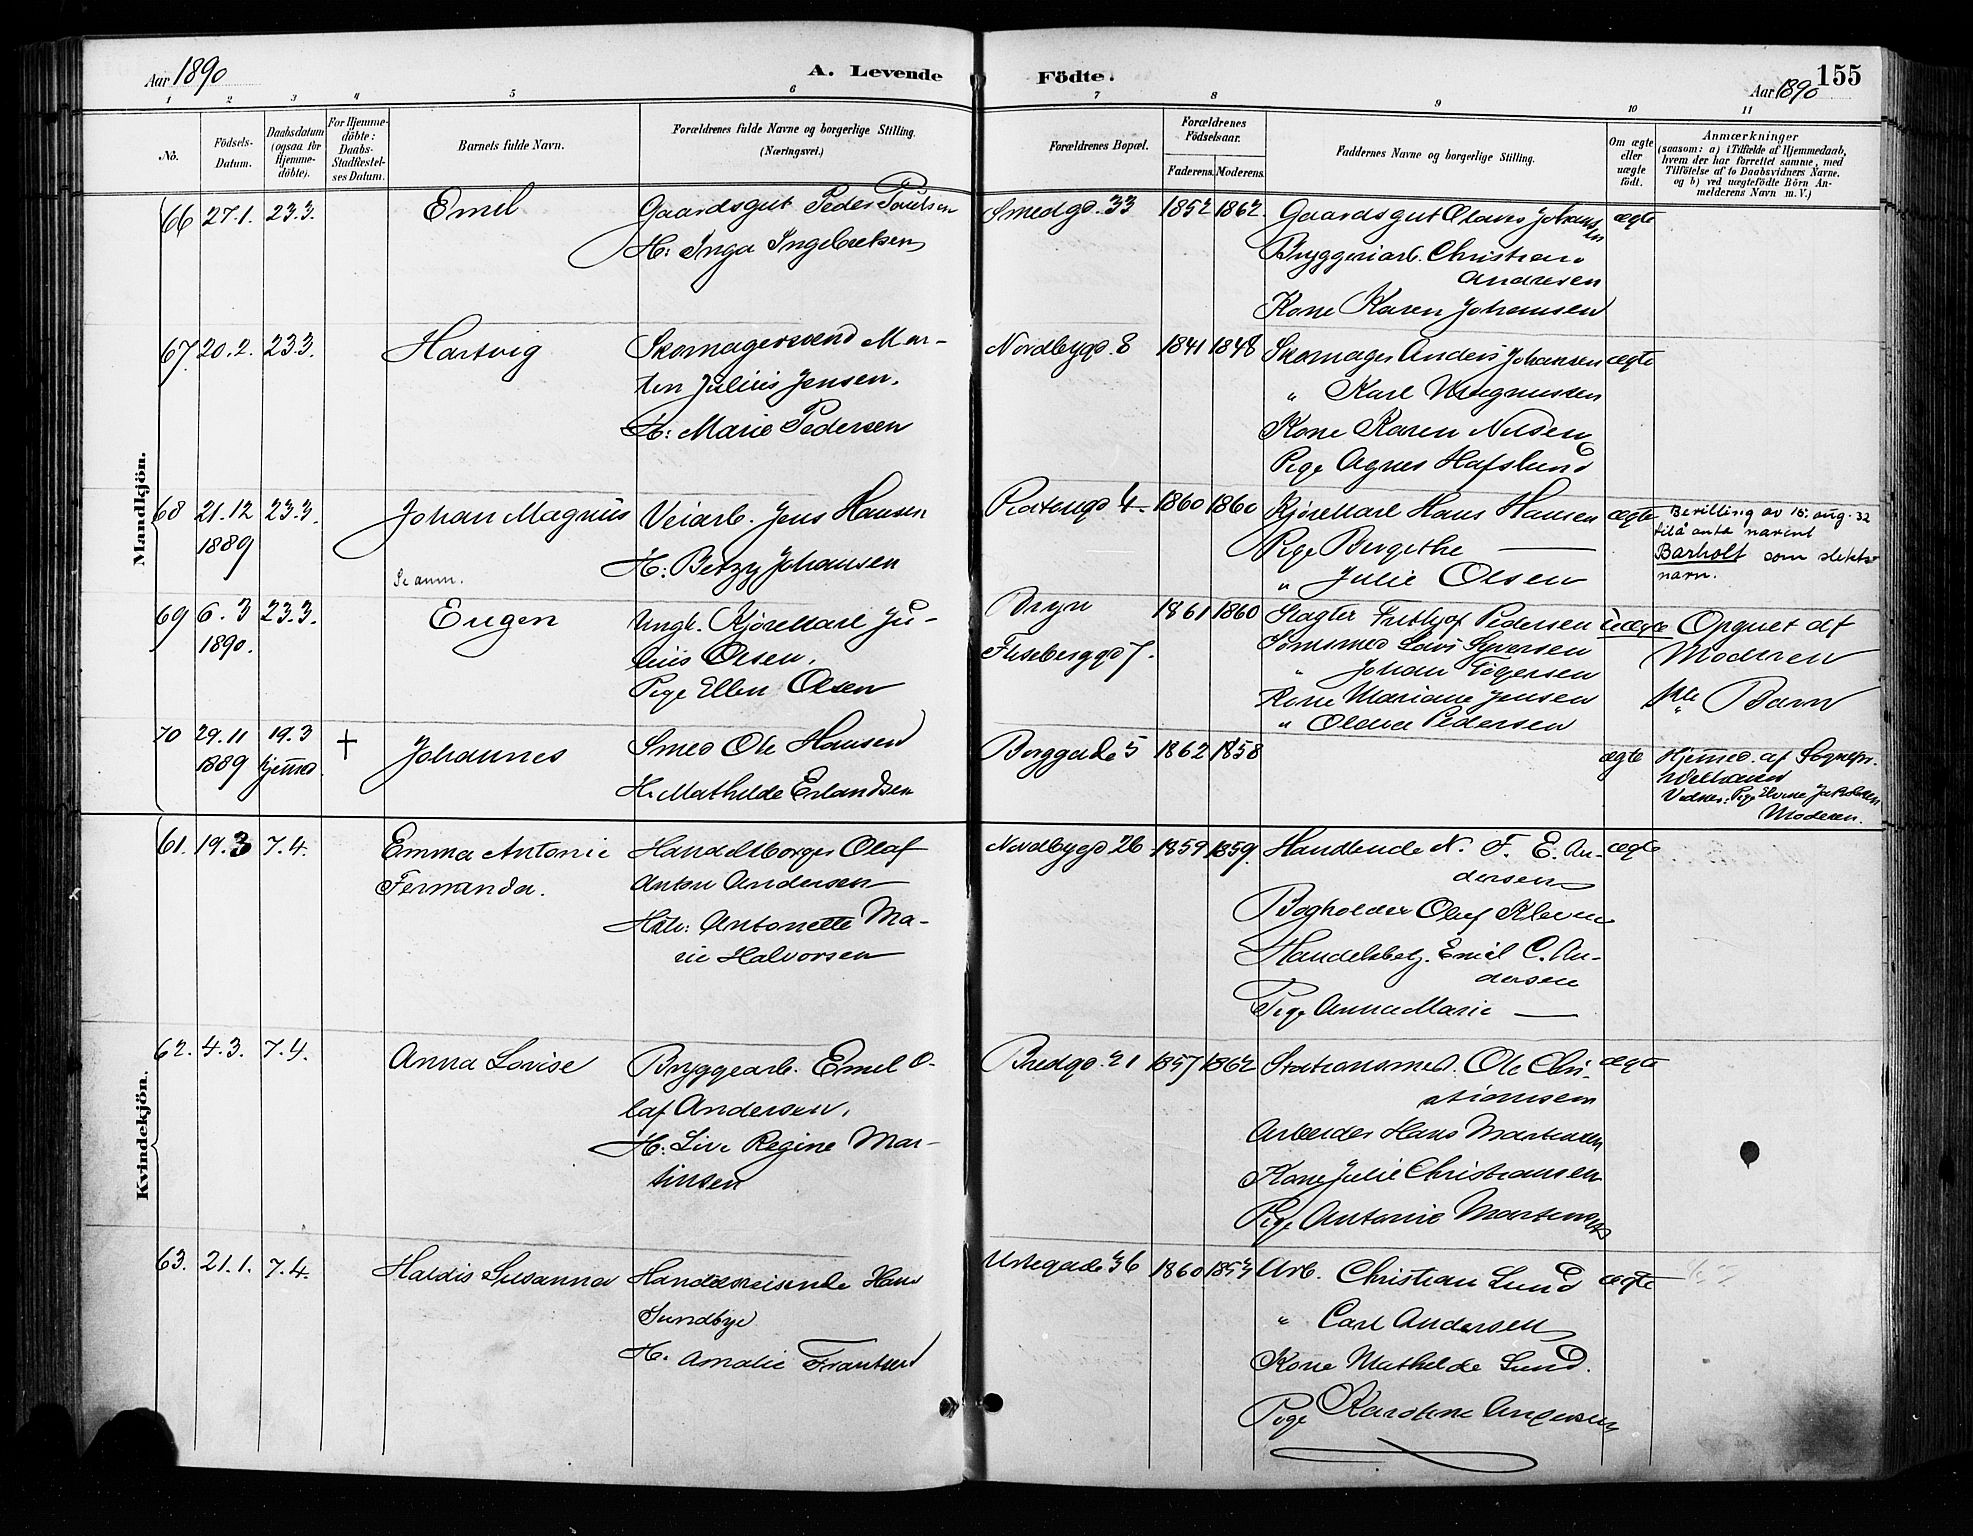 Aar 1890
A. Levende
Födte.
Aar 1890
155
1 2 3 4 5 6 7 8 9 10 11
No.
Födsels-
Datum.
Daabsdatum
(ogsaa for
Hjemme-
döbte).
For Hjemme-
döbte:
Daabs-
Stadfæstel-
ses Datum.
Barnets fulde Navn.
Forældrenes fulde Navne og borgerlige Stilling.
(Næringsvei.)
Forældrenes Bopæl.
Forældrenes
Födselsaar.
Faderens. Moderens.
Faddernes Navne og borgerlige Stilling.
Om ægte
eller
uægte
födt.
Anmærkninger
(saasom: a) i Tilfælde af Hjemmedaab,
hvem der har forrettet samme, med
Tilföielse af to Daabsvidners Navne.
og b) ved uægtefödte Börn An-
melderens Navn m. V.)
Mandkjön.
66 27.1. 23.3. Emil
Gaardsgut Peder Paulsen
H: Inga Ingebretsen
Smedgd. 33 1852 1862
Gaardsgut Olaus Johansen
Bryggeriarb. Christian
Andresen
Kone Karen Johansen
ægte
67. 20.2. 23.3. Hartvig
Skomagersvend Mar-
tin Julius Jensen.
H: Marie Pedersen
Nordbygd. 8 1841 1848
Skomager Anders Johansen
" Karl Magnussen
Kone Karen Nilsen
Pige Agnes Hafslund
ægte
68 21.12 23.3.
1889
Johan Magnus
Se anm.
Veiarb. Jens Hansen
H: Betzy Johansen
Platougd 4 1860 1860
Kjörekarl Hans Hansen
Pige Bergethe —
" Julie Olsen
ægte
Bevilling av 15. aug. 32
til å anta navnet
Barholt som slekts-
navn.
69 6.3 23.3.
1890.
Eugen
Ungk. Kjörekarl Ju-
lius Olsen.
Pige Ellen Olsen
Bryn
Flisberggd 7. 1861 1860
Slagter Frithjof Pedersen
Sömsmed Lovis Syversen
" Johan Tögersen
Kone Mariane Jensen
" Oldina Pedersen
uægte
Opgivet af
Moderen
" Barn
70 29.11 19.3
1889 hjemmed.
+
Johannes
Smed Ole Hansen
H. Mathilde Erlandsen
Borggade 5 1862 1858
ægte
Hjemmed. af Sognepr.
Vidner: Pige Elvine Jakobsen
Moderen.
Kvindekjön.
61. 19.3 7.4.
Emma Antonie
Fernanda.
Handelsborger Olaf
Anton Andersen
Hstr: Antonette Ma-
rie Halvorsen
Nordbygd 26 1859 1859.
Handlende N. F. E. An-
dersen
Bogholder Oluf Kleven
Handelsbetj. Emil C. An-
dersen
Pige Anna Marie —
ægte
62. 4.3. 7.4. Anna Lovise
Bryggearb. Emil O-
laf Andersen,
H: Live Regine Mar-
tinsen
Bredgd. 21 1857 1862
Stationsmed. Ole Chri-
stiansen
Arbeider Hans Martinsen
Kone Julie Christiansen
Pige Antonie Martinsen
ægte
63. 21.1. 7.4. Haldis Susanna
Handelsreisende Hans
Sundbye
H. Amalie Frantsen
Urtegade 36 1860 1853
Arb. Christian Lund
" Carl Andersen
Kone Mathilde Lund.
Pige Karoline Andersen
ægte